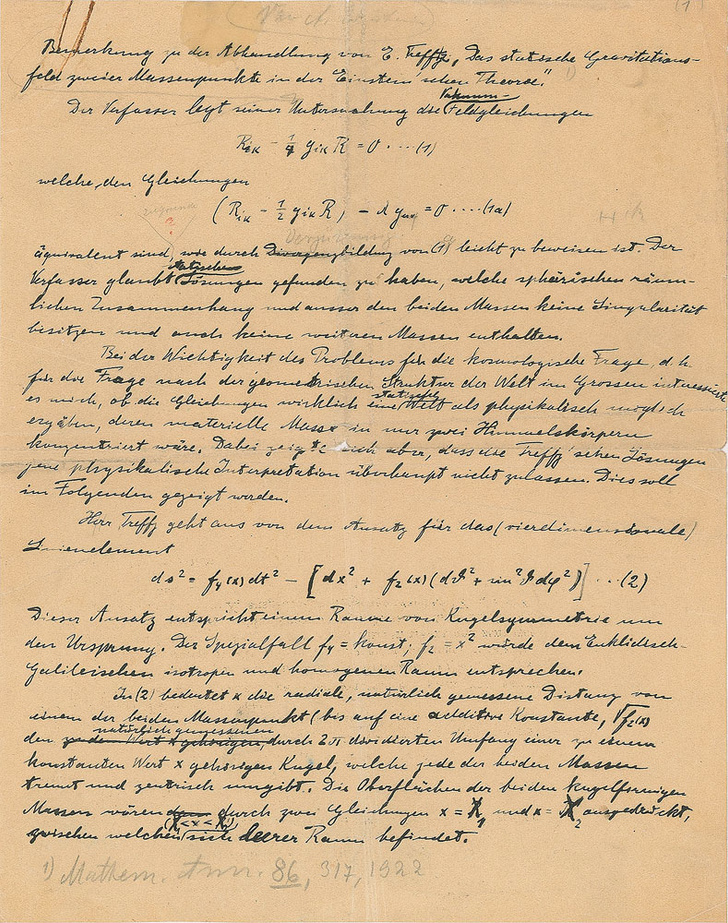 (1)
Bemerkung zu der Abhandlung von E. Trefftz „Das statische Gravitations-
feld zweier Massenpunkte in der Einstein'schen Theorie." 1)
Der Verfasser legt seiner Untersuchung die Vakuum-Feldgleichungen
R_{iκ} - 1/4 g_{iκ} R = 0 .... (1)
welche den Gleichungen
(R_{iκ} - 1/2 g_{iκ} R) - λ g_{iκ} = 0 .... (1a)
äquivalent sind, wie durch Divergenzbildung von (1) leicht zu beweisen ist. Der
Verfasser glaubt statische Lösungen gefunden zu haben, welche sphärischen räum-
lichen Zusammenhang und ausser den beiden Massen keine Singularität
besitzen und auch keine weiteren Massen enthalten.
Bei der Wichtigkeit des Problems für die kosmologische Frage, d. h.
für die Frage nach der geometrischen Struktur der Welt im Grossen interessierte
es mich, ob die Gleichungen wirklich eine statische Welt als physikalisch möglich
ergäben, deren materielle Masse in nur zwei Himmelskörpern
konzentriert wäre. Dabei zeigte sich aber, dass die Trefftz'schen Lösungen
jene physikalische Interpretation überhaupt nicht zulassen. Dies soll
im Folgenden gezeigt werden.
Herr Trefftz geht aus von dem Ansatz für das (vierdimensionale)
Linienelement
ds² = f₄(x) dt² - [dx² + f₂(x) (dϑ² + sin²ϑ dφ²)] ... (2)
Dieser Ansatz entspricht einem Raume von Kugelsymmetrie um
den Ursprung. Der Spezialfall f₄ = konst; f₂ = x² würde dem Euklidisch-
Galileischen isotropen und homogenen Raum entsprechen.
In (2) bedeutet x die radiale, natürlich gemessene Distanz von
einem der beiden Massenpunkte (bis auf eine additive Konstante, √f₂(x)
den zu dem Wert x gehörigen, natürlich gemessenen durch 2π dividierten Umfang einer zu einem
konstanten Wert x gehörigen Kugel, welche jede der beiden Massen
trennt und zentrisch umgibt. Die Oberflächen der beiden kugelförmigen
Massen wären durch zwei Gleichungen x = X₁ und x = X₂ ausgedrückt,
zwischen welchen (X₁<x<X₂) sich leerer Raum befindet.
1) Mathem. Ann. 86, 317, 1922